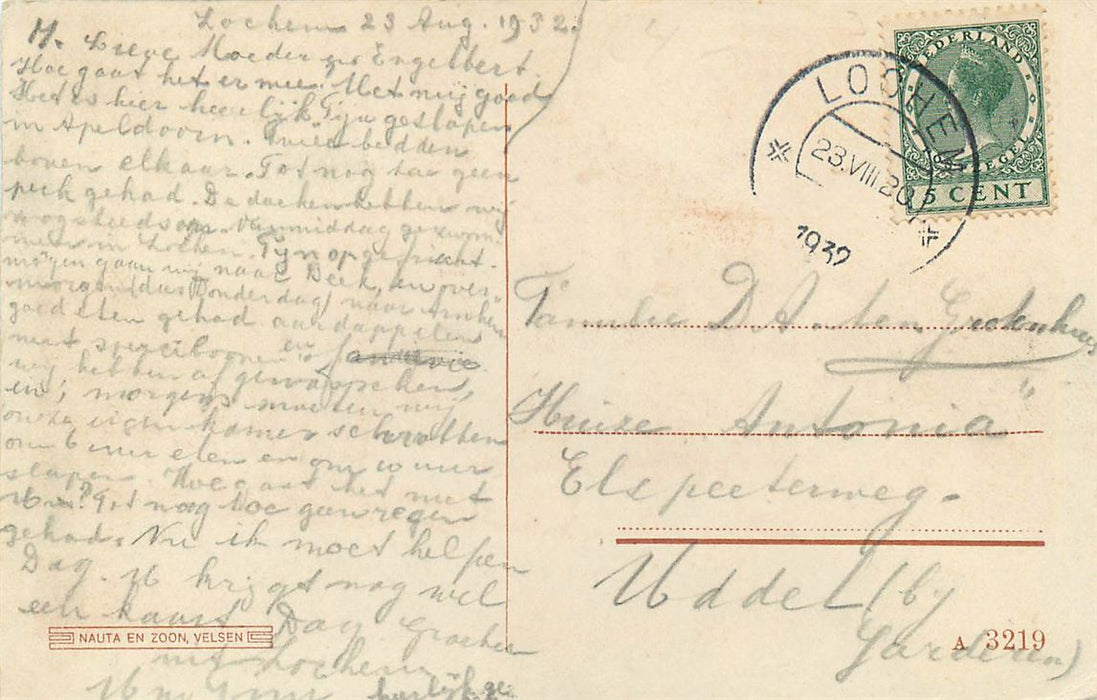 Lochem 23 Aug. 1932.
Lieve Moeder en Engelbert.
Hoe gaat het er mee. Met mij goed
Het is hier heerlijk. Fijn geslapen
in Apeldoorn. Twee bedden
boven elkaar. Tot nog toe geen
pech gehad. De daken hebben wij
nog steeds op. Vanmiddag gezwom-
men in Lochem. Fijn opgefrischt.
morgen gaan wij naar Beek, en over-
morgen (dus Donderdag) naar Arnhem
goed eten gehad. aardappelen
met sperciboonen en
wij hebben afgewasschen,
en 's morgens moeten wij
onze eigen kamer schrobben
om 6 uur eten en om 10 uur
slapen. Hoe gaat het met
U? Tot nog toe geen regen
gehad. Nu ik moet helpen
Dag. U krijgt nog wel
een kaart Dag Groeten
uit Lochem
NAUTA EN ZOON, VELSEN
NEDERLAND
5 CENT
LOCHEM
23.VIII 20
1932
Familie D. A. ten Grotenhuis
Huize "Antonia"
Elspeeterweg-
Uddel (bij
Garderen)
A 3219